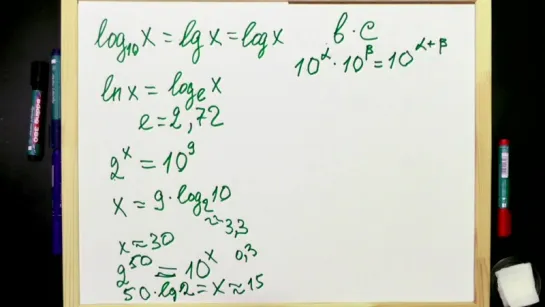 log₁₀x = lgx = logx
ln x = logₑx
e = 2,72
2ˣ = 10⁹
x = 9 · log₂10
≈ 3,3
x ≈ 30
2⁵⁰ = 10ˣ 0,3
50 · lg2 = x ≈ 15
b · c
10^α · 10^β = 10^(α+β)